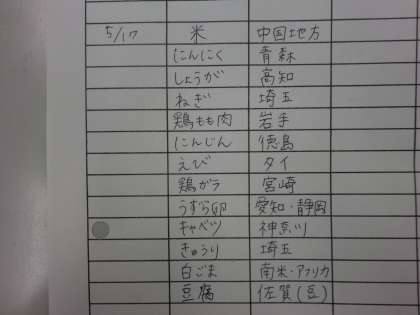 5/17 米 中国地方
にんにく 青森
しょうが 高知
ねぎ 埼玉
鶏もも肉 岩手
にんじん 徳島
えび タイ
鶏ガラ 宮崎
うずら卵 愛知・静岡
キャベツ 神奈川
きゅうり 埼玉
白ごま 南米・アフリカ
豆腐 佐賀(豆)